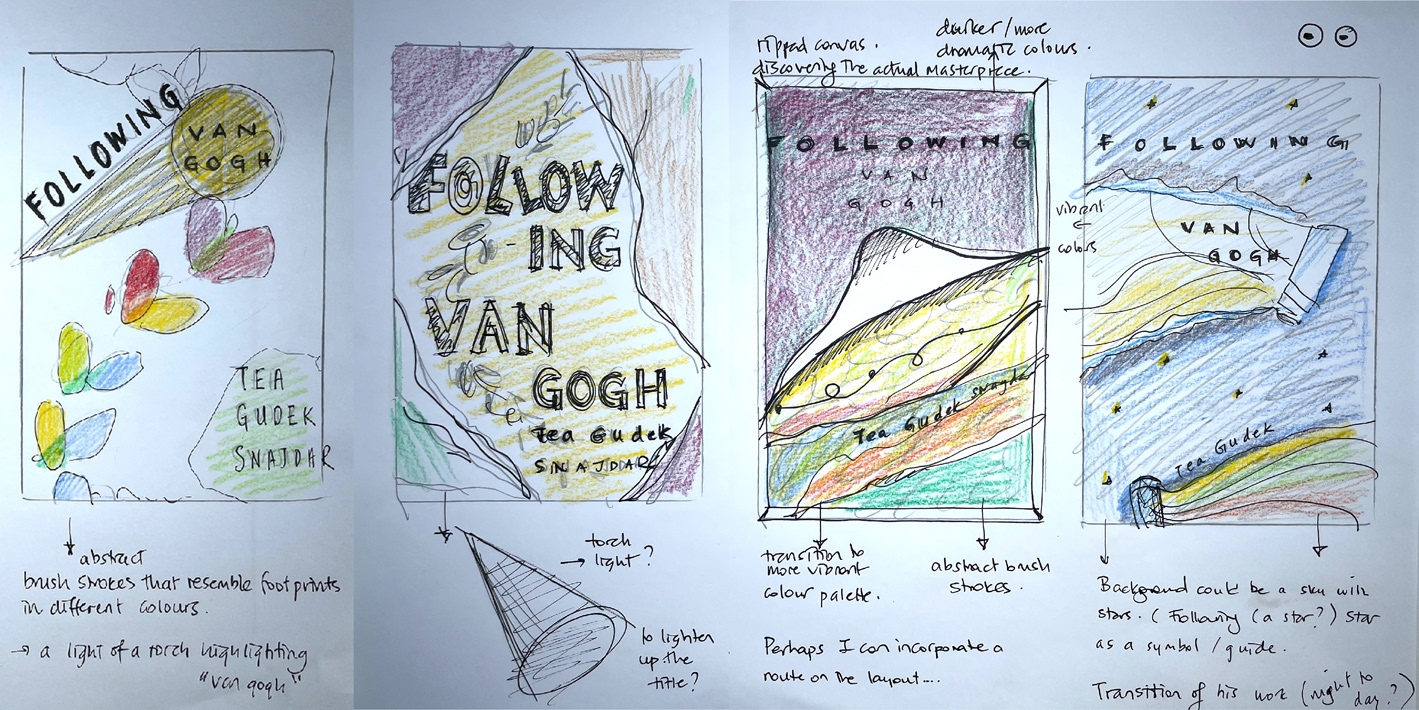 FOLLOWING
VAN
GOGH
TEA
GUDEK
SNAJDAR
abstract
brush strokes that resemble footprints
in different colours.
→ a light of a torch highlighting
"van gogh"
FOLLOW
-ING
VAN
GOGH
Tea Gudek
SNAJDAR
torch
→ light?
to lighten
up the
title?
ripped canvas.
discovering the actual masterpiece.
darker/more
dramatic colours.
FOLLOWING
VAN
GOGH
Tea Gudek Snajdar
transition to
more vibrant
colour palette.
abstract brush
strokes.
Perhaps I can incorporate a
route on the layout....
vibrant
←
colors
FOLLOWING
VAN
GOGH
Tea Gudek
Background could be a sky with
stars. (Following (a star?) Star
as a symbol / guide.
Transition of his work (night to
day?)